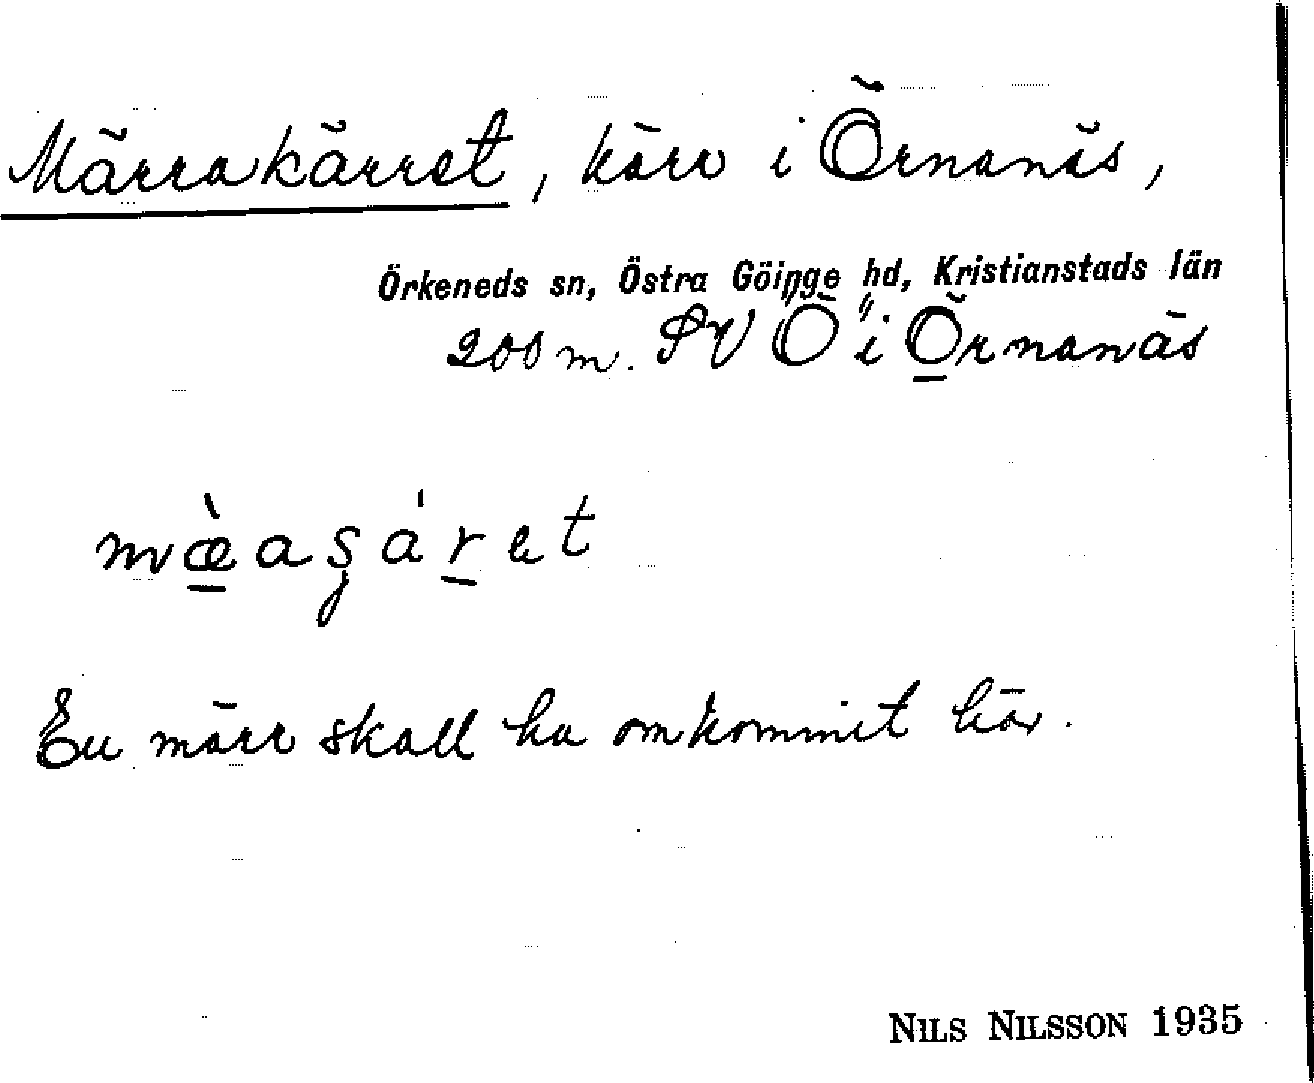 Märrakärret, kärr i Örnanäs,
Örkeneds sn, Östra Göinge hd, Kristianstads län
200 m. SV "Ö" i Örnanäs
mæ̱̀aʂáṟet
En märr skall ha omkommit här.
NILS NILSSON 1935